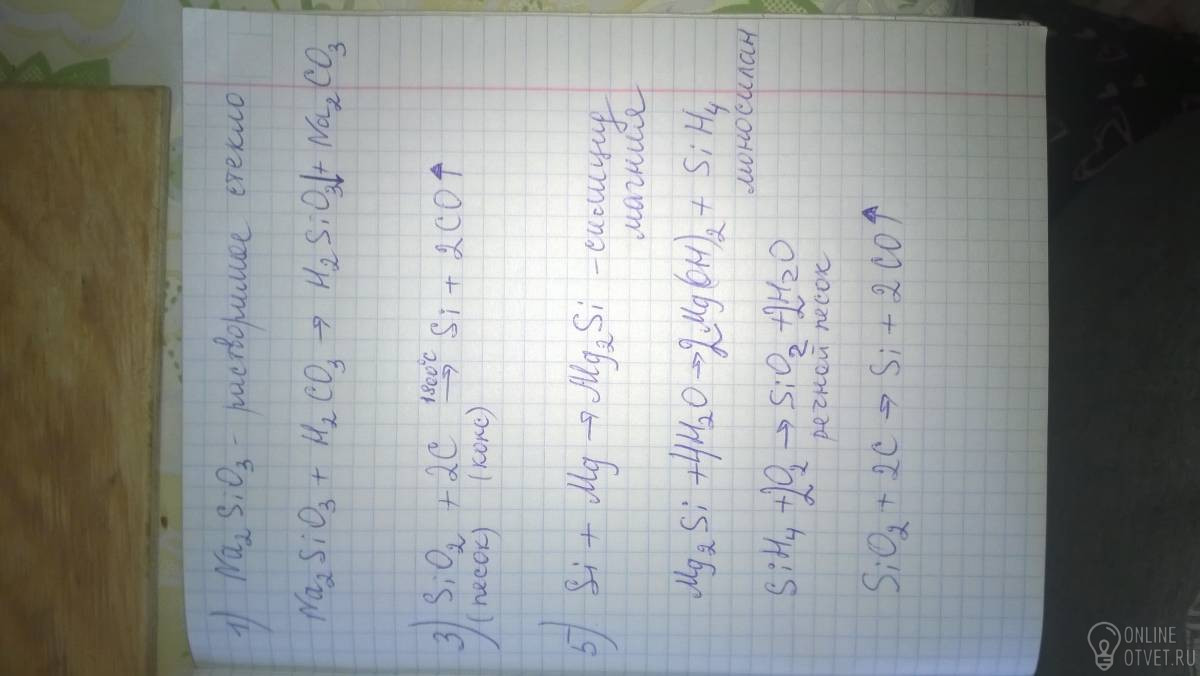 1) Na₂SiO₃ - растворимое стекло
Na₂SiO₃ + H₂CO₃ → H₂SiO₃↓ + Na₂CO₃
3) SiO₂ + 2C 1800°C → Si + 2CO↑
(песок) (кокс)
5) Si + Mg → Mg₂Si - силицид
магния
Mg₂Si + 4H₂O → 2Mg(OH)₂ + SiH₄
моносилан
SiH₄ + 2O₂ → SiO₂ + 2H₂O
речной песок
SiO₂ + 2C → Si + 2CO↑
ONLINE
OTVET.RU